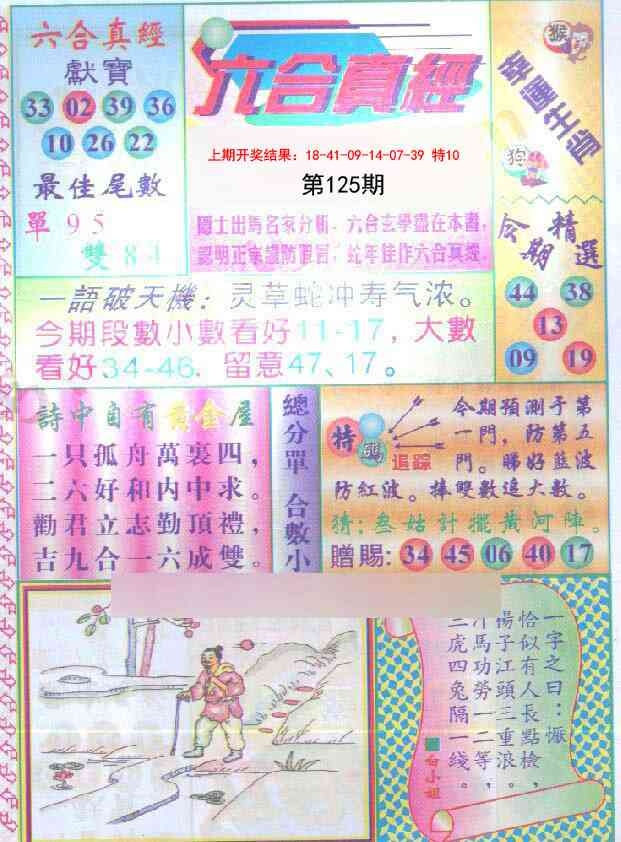 六合真經
獻寶
33 02 39 36
10 26 22
最佳尾數
單 9 5
雙 8
六合真經
上期开奖结果: 18-41-09-14-07-39 特10
第125期
隱士出馬名家分析, 六合玄學盡在本書,
蛇年佳作六合真經.
猴
幸運生肖
狗
今期精選
44 38
13
09 19
一語破天機: 灵草蛇冲寿气浓。
今期段數小數看好11-17, 大數
看好34-46. 留意47、17。
詩中自有黃金屋
一只孤舟萬裏四,
二六好和内中求。
勸君立志勤頂禮,
吉九合一六成雙。
總分單 合數小
特碼
追踪
今期預測子第
一門, 防第五
門。睇好藍波
防紅波。捧雙數追大數。
猜: 叁姑計擺黃河陣。
贈賜: 34 45 06 40 17
一字之曰: 懨
恰似有人長點檢,
楊子江頭三重浪。
汗馬功勞一二等,
三虎四兔隔一线。
白小姐